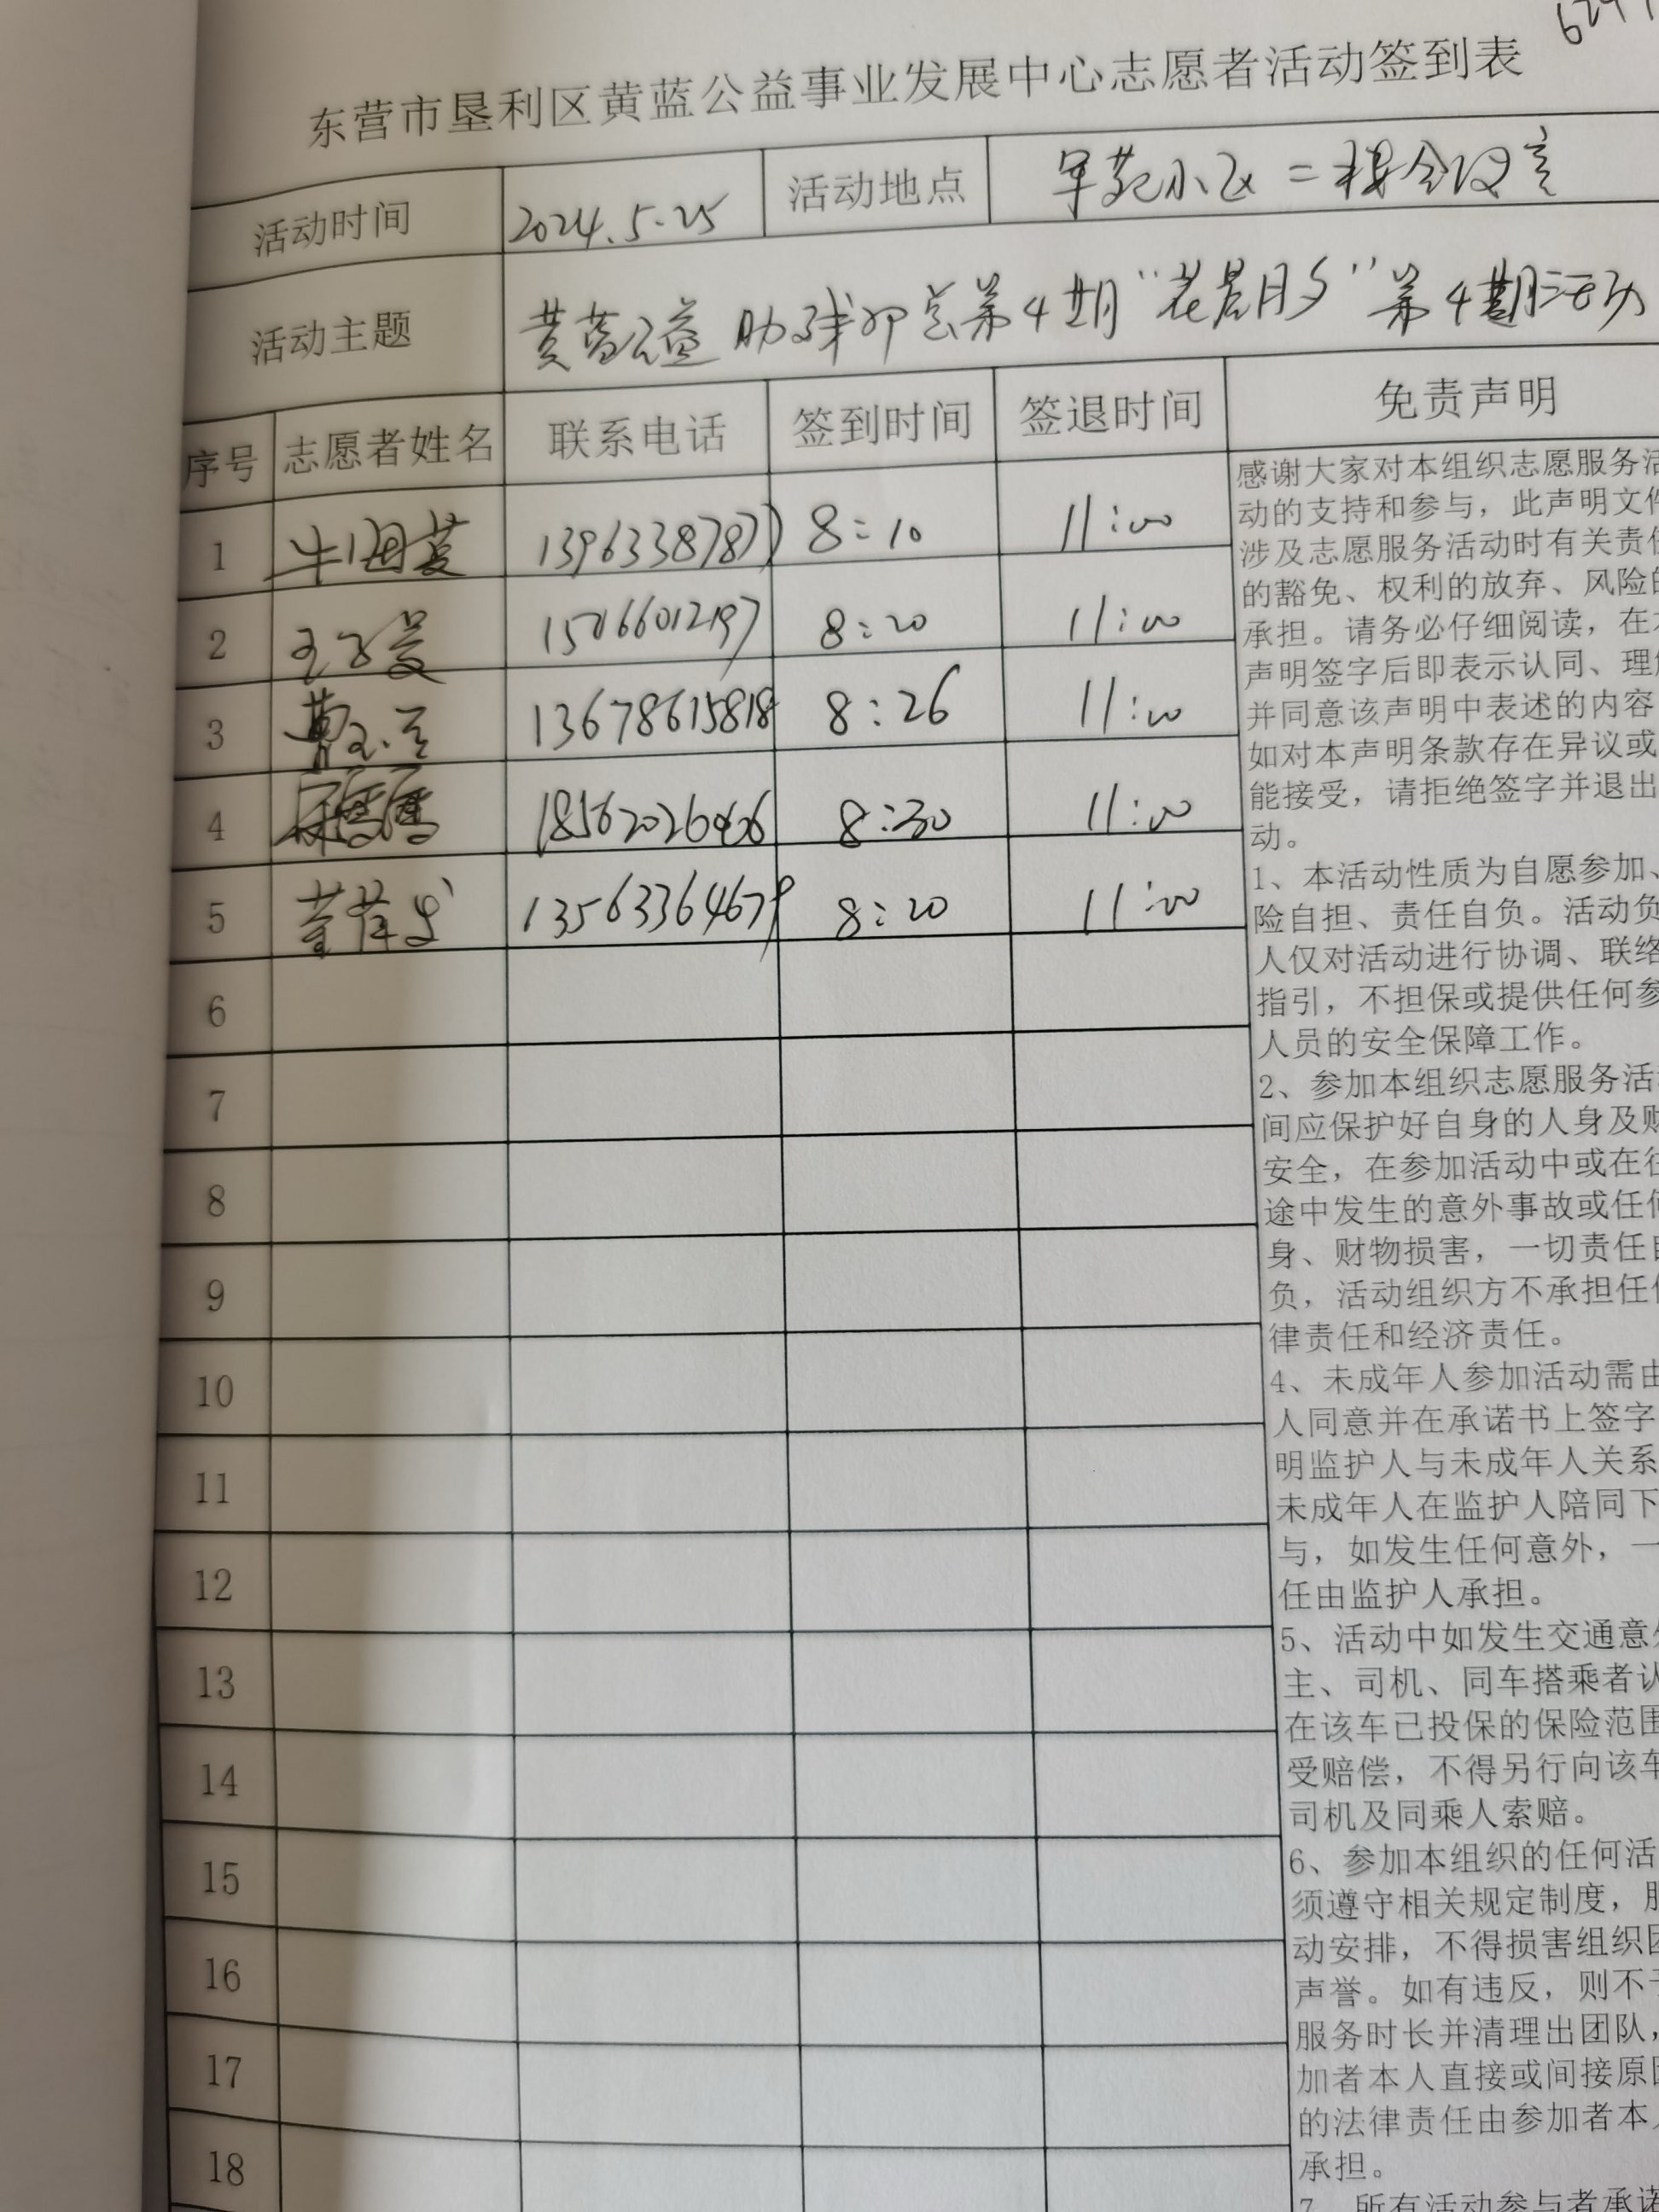 东营市垦利区黄蓝公益事业发展中心志愿者活动签到表
活动时间 2024.5.25 活动地点 军苑小区二楼会议室
活动主题 黄蓝公益助残 总第4期“花晨月夕”第4期活动
序号 志愿者姓名 联系电话 签到时间 签退时间 免责声明
1 牛海英 13963387877 8:10 11:00
2 8:20 11:00
3 13678615818 8:26 11:00
4 8:30 11:00
5 13563364679 8:20 11:00
6
7
8
9
10
11
12
13
14
15
16
17
18
感谢大家对本组织志愿服务活
动的支持和参与，此声明文件
涉及志愿服务活动时有关责任
的豁免、权利的放弃、风险的
承担。请务必仔细阅读，在本
声明签字后即表示认同、理解
并同意该声明中表述的内容
如对本声明条款存在异议或
能接受，请拒绝签字并退出
动。
1、本活动性质为自愿参加、
险自担、责任自负。活动负
人仅对活动进行协调、联络
指引，不担保或提供任何参
人员的安全保障工作。
2、参加本组织志愿服务活
间应保护好自身的人身及财
安全，在参加活动中或在往
途中发生的意外事故或任何
身、财物损害，一切责任自
负，活动组织方不承担任何
律责任和经济责任。
4、未成年人参加活动需由
人同意并在承诺书上签字
明监护人与未成年人关系
未成年人在监护人陪同下
与，如发生任何意外，一
任由监护人承担。
5、活动中如发生交通意外
主、司机、同车搭乘者认
在该车已投保的保险范围
受赔偿，不得另行向该车
司机及同乘人索赔。
6、参加本组织的任何活
须遵守相关规定制度，服
动安排，不得损害组织团
声誉。如有违反，则不予
服务时长并清理出团队，
加者本人直接或间接原因
的法律责任由参加者本人
承担。
7、所有活动参与者承诺